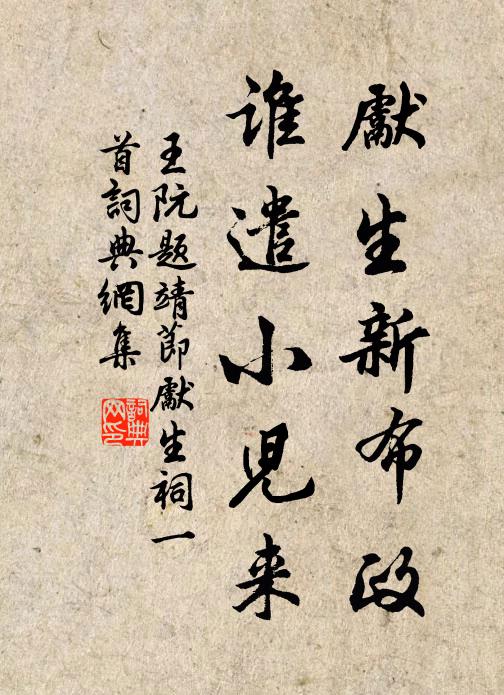 獻生新布政
谁遣小児来
王阮题靖節獻生祠一
首詞典網集
詞典网印